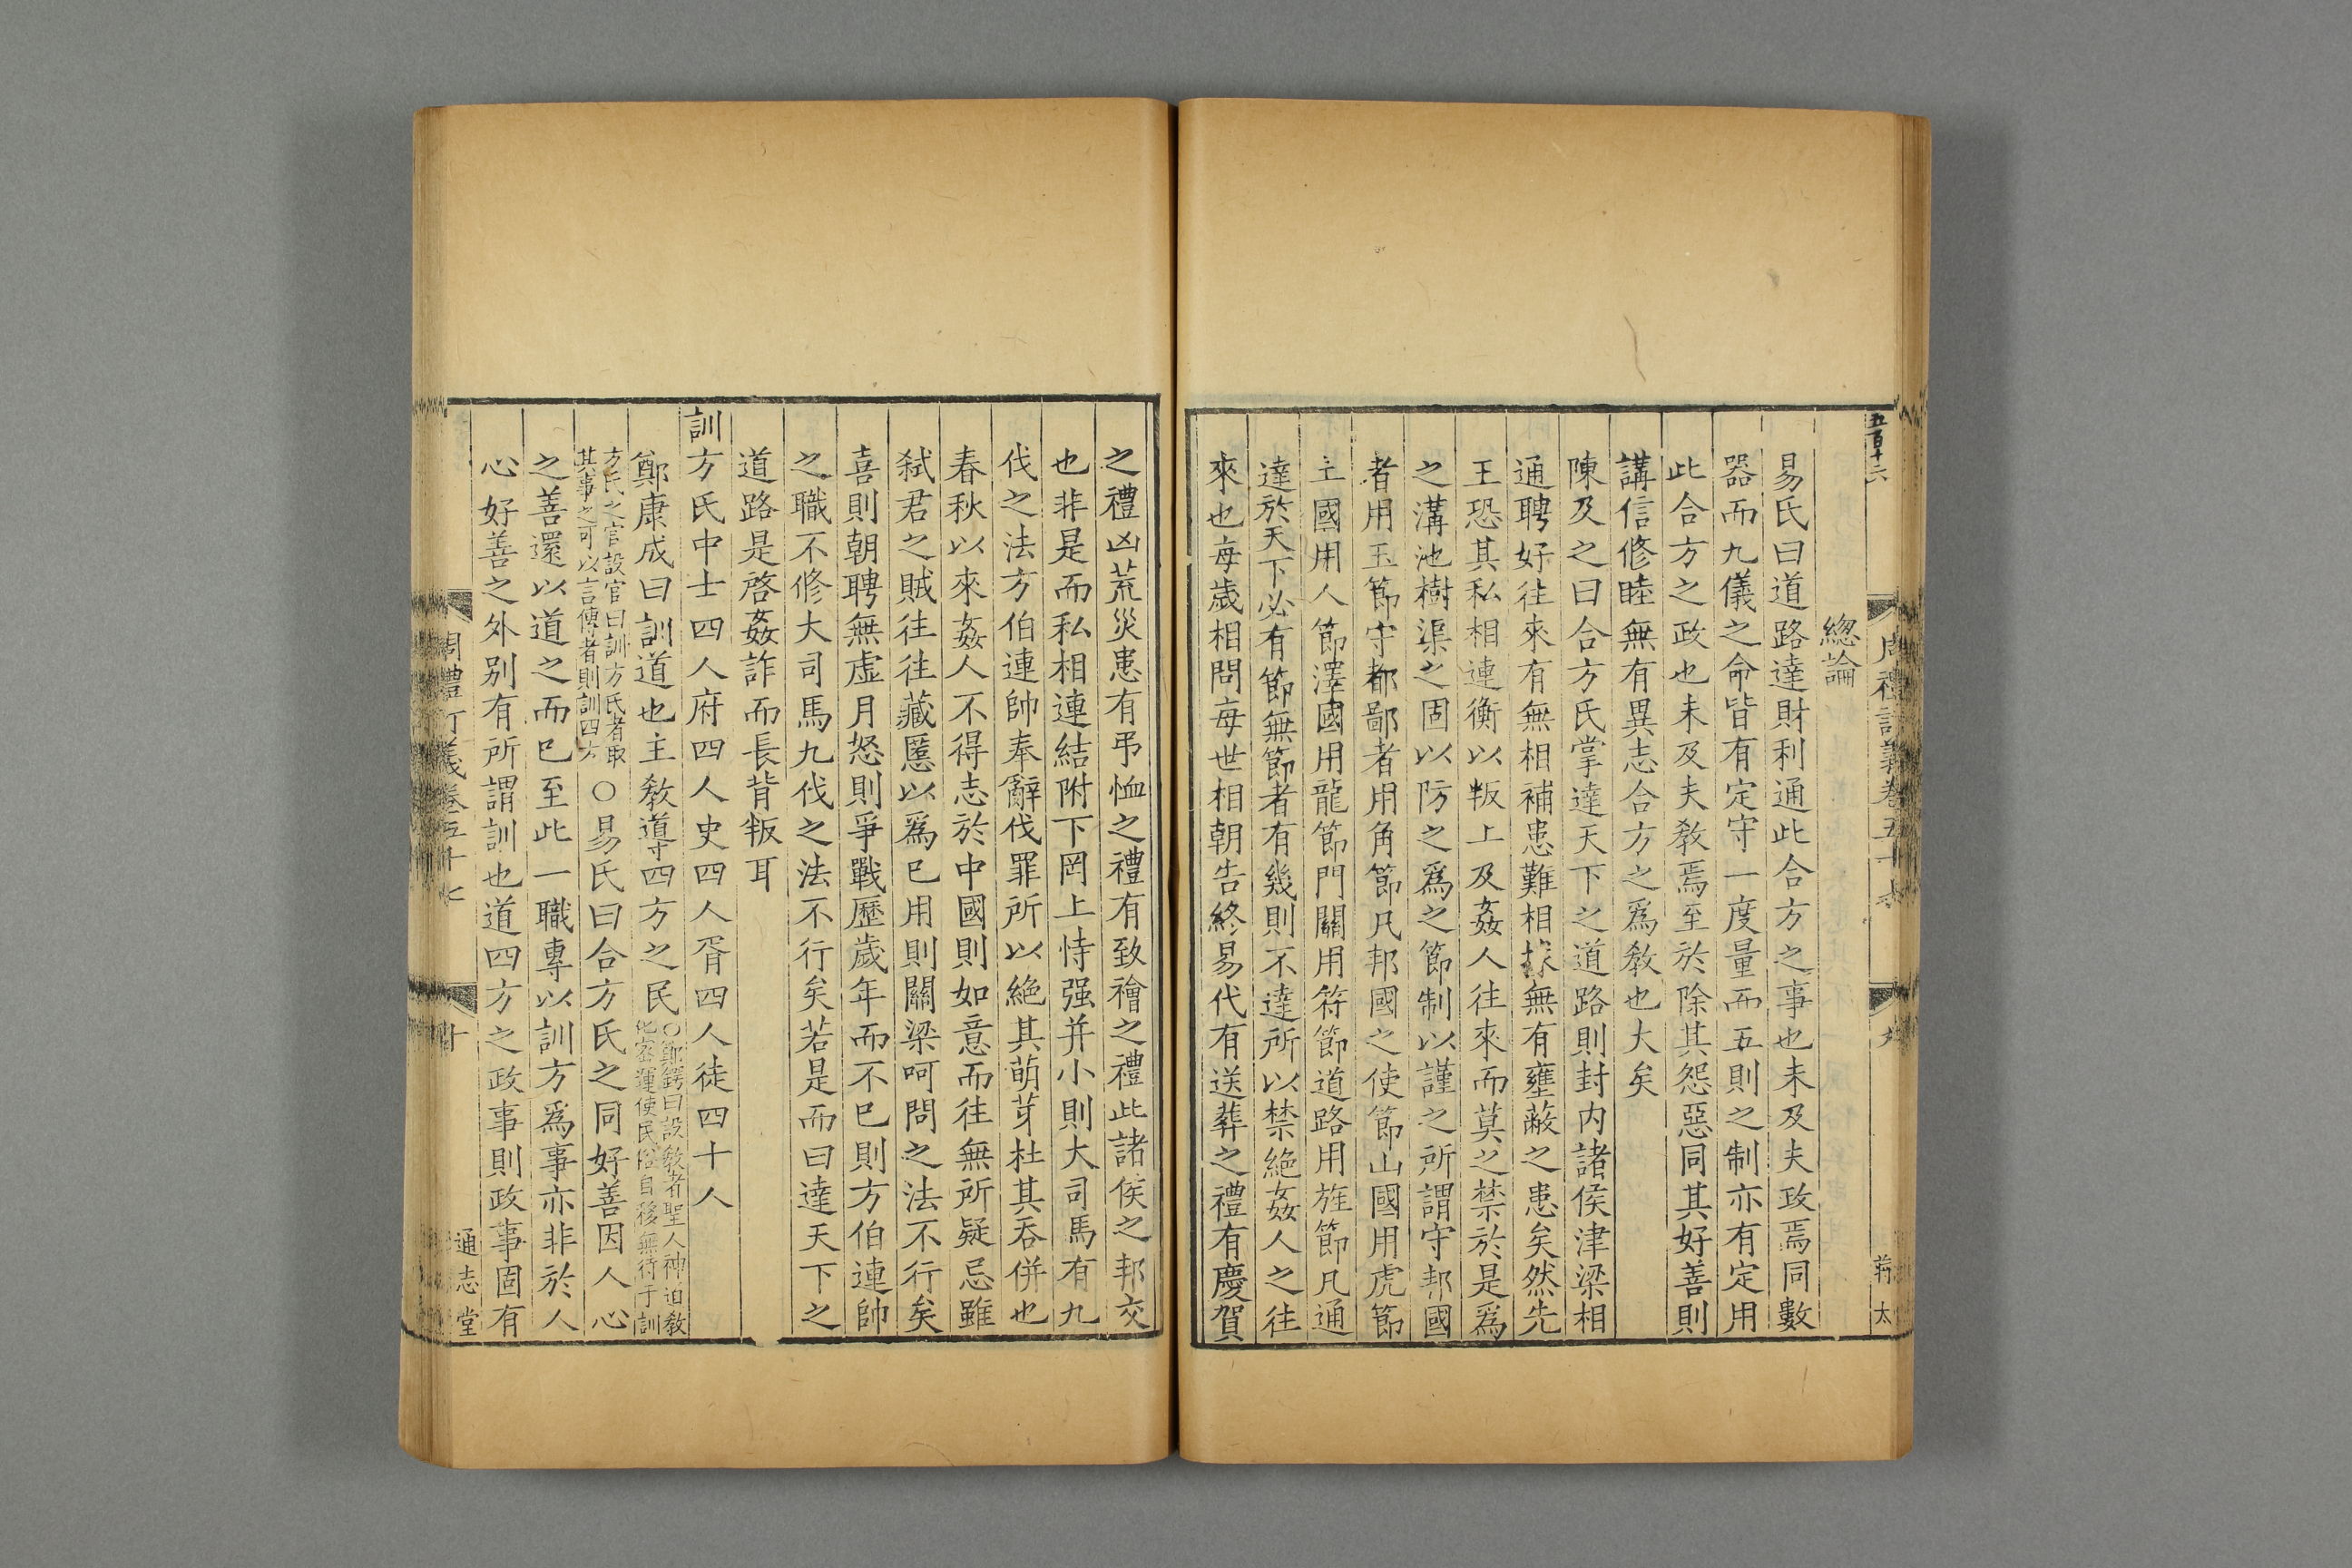 五百十六
總論
易氏曰道路達財利通此合方之事也未及夫政焉同數
器而九儀之命皆有定守一度量而五則之制亦有定用
此合方之政也未及夫敎焉至於除其怨惡同其好善則
講信修睦無有異志合方之爲敎也大矣
陳及之曰合方氏掌達天下之道路則封内諸侯津梁相
通聘好往來有無相補患難相捄無有壅蔽之患矣然先
王恐其私相連衡以叛上及姦人往來而莫之禁於是爲
之溝池樹渠之固以防之爲之節制以謹之所謂守邦國
者用玉節守都鄙者用角節凡邦國之使節山國用虎節
土國用人節澤國用龍節門關用符節道路用旌節凡通
達於天下必有節無節者有幾則不達所以禁絶姦人之往
來也每歲相問每世相朝告終易代有送葬之禮有慶賀
之禮凶荒災患有弔恤之禮有致禬之禮此諸侯之邦交
也非是而私相連結附下罔上恃强并小則大司馬有九
伐之法方伯連帥奉辭伐罪所以絶其萌芽杜其吞併也
春秋以來姦人不得志於中國則如意而往無所疑忌雖
弑君之賊往往藏匿以爲已用則關梁呵問之法不行矣
喜則朝聘無虛月怒則爭戰歷歲年而不已則方伯連帥
之職不修大司馬九伐之法不行矣若是而曰達天下之
道路是啓姦詐而長背叛耳
訓方氏中士四人府四人史四人胥四人徒四十人
鄭康成曰訓道也主敎導四方之民○鄭鍔曰設敎者聖人神道敎
化密運使民俗自移無待于訓
方氏之官設官曰訓方氏者取
其事之可以言傳者則訓四方○易氏曰合方氏之同好善因人心
之善還以道之而已至此一職專以訓方爲事亦非於人
心好善之外别有所謂訓也道四方之政事則政事固有
周禮訂義卷五十七
十
通志堂